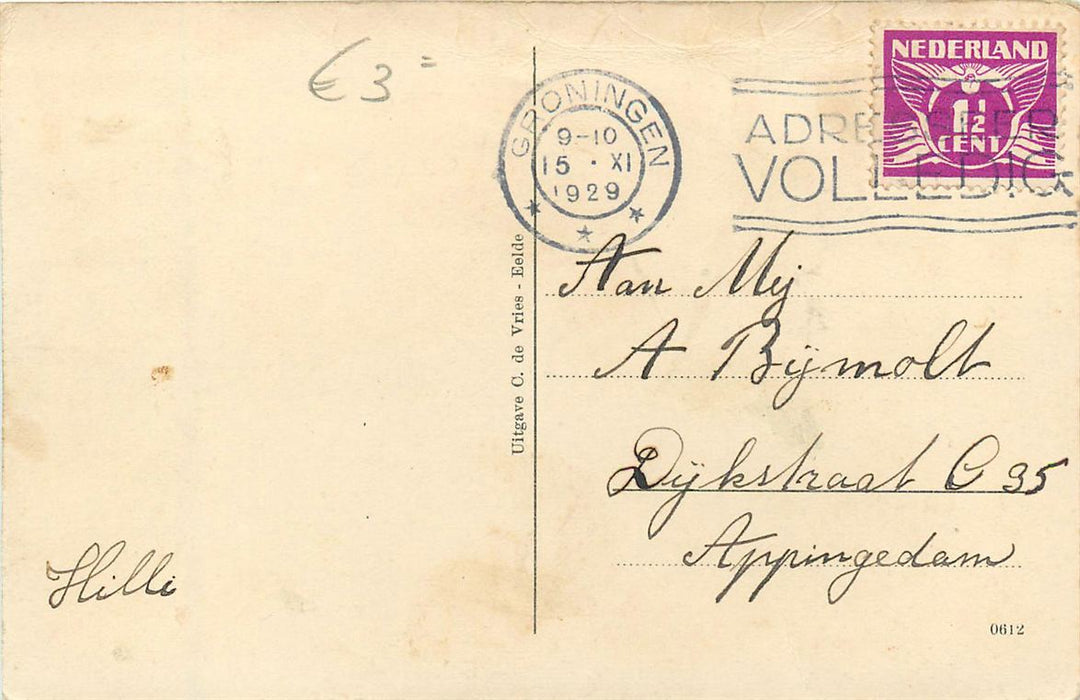 € 3 =
GRONINGEN
9-10
15 · XI
1929
ADRESSEER
VOLLEDIG
NEDERLAND
1½
CENT
Uitgave C. de Vries - Eelde
Aan Mej
A Bijmolt
Dijkstraat C 35
Appingedam
Hilli
0612